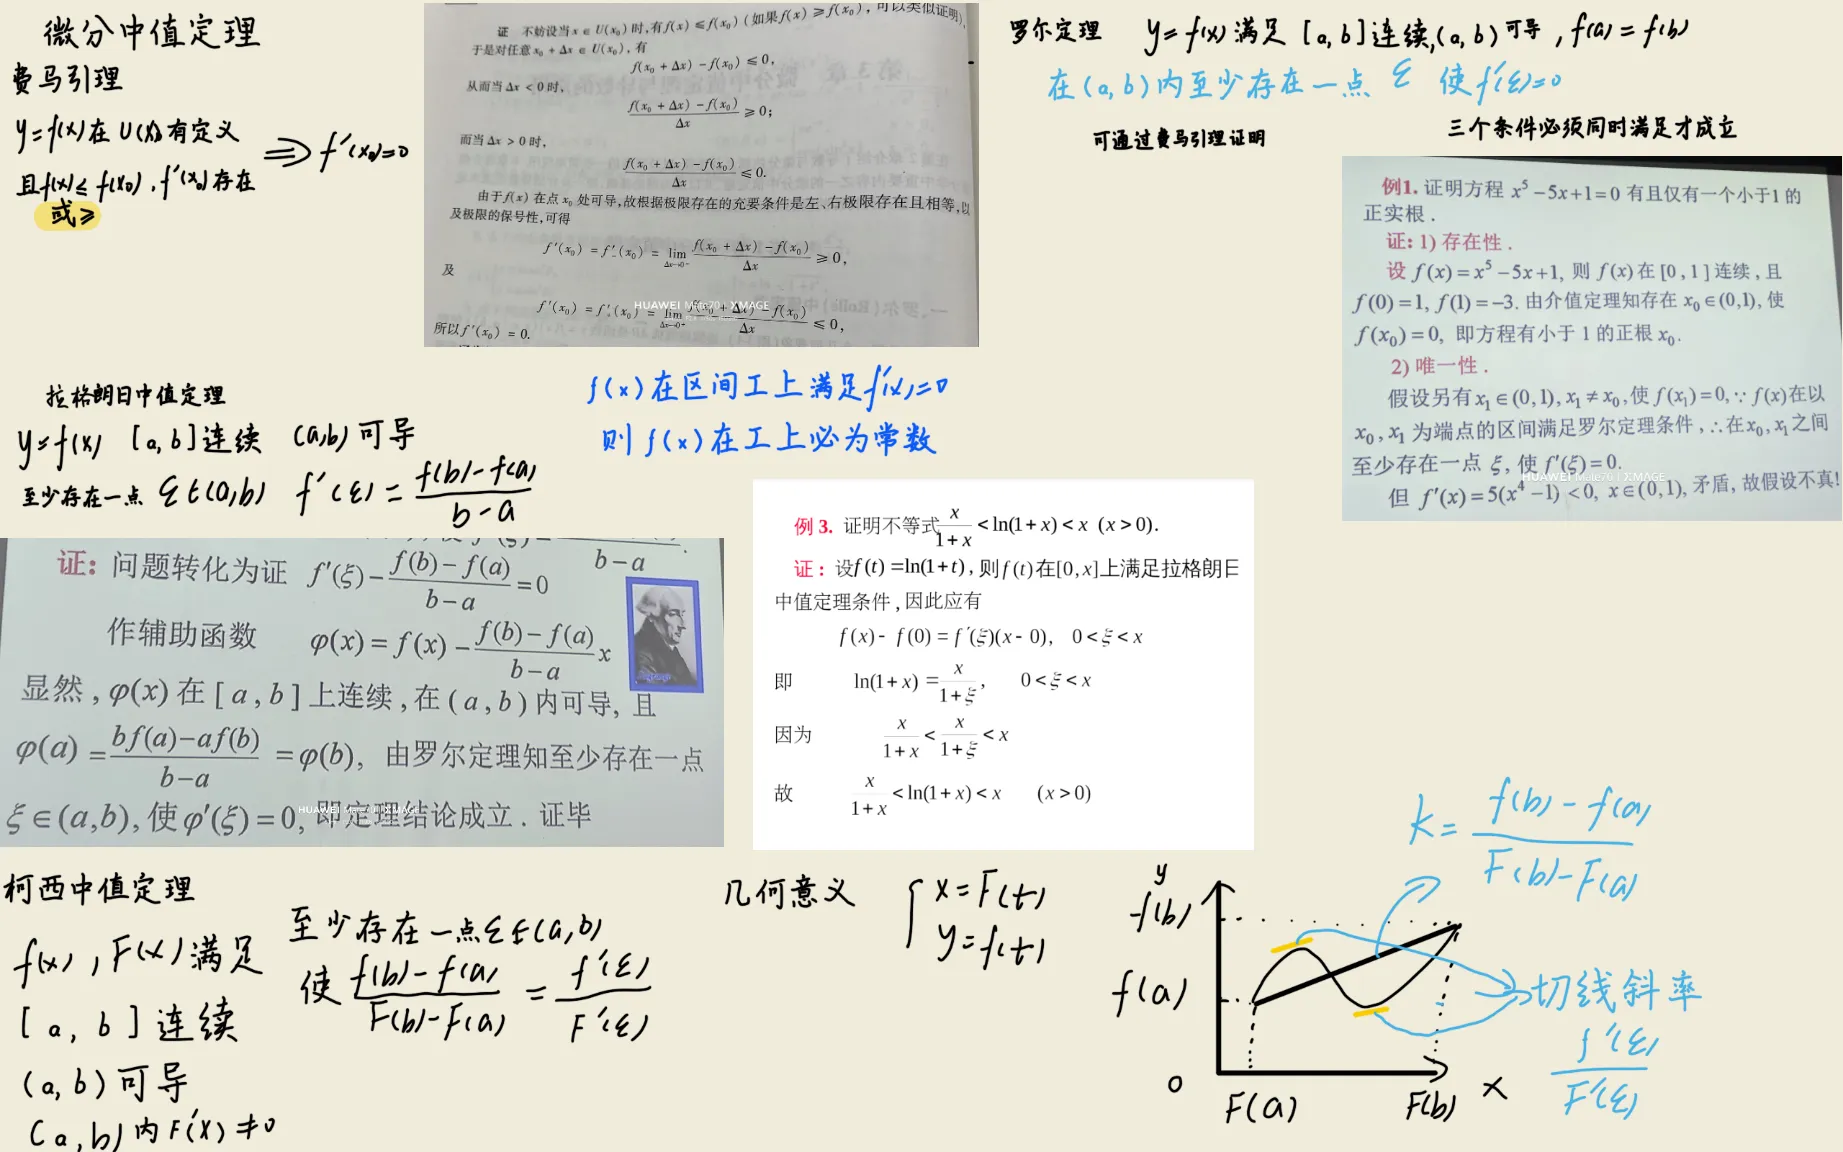 微分中值定理
费马引理
y=f(x)在U(x₀)有定义
且f(x)≤f(x₀),f'(x₀)存在
或≥
⇒ f'(x₀)=0
证 不妨设当x∈U(x₀)时,有f(x)≤f(x₀)(如果f(x)≥f(x₀),可以类似证明),
于是对任意x₀+Δx∈U(x₀),有
f(x₀+Δx)-f(x₀)≤0,
从而当Δx<0时,
(f(x₀+Δx)-f(x₀))/Δx≥0;
而当Δx>0时,
(f(x₀+Δx)-f(x₀))/Δx≤0.
由于f(x)在点x₀处可导,故根据极限存在的充要条件是左、右极限存在且相等,以
及极限的保号性,可得
f'(x₀)=f'₋(x₀)=lim_{Δx→0⁻} (f(x₀+Δx)-f(x₀))/Δx≥0,
及
f'(x₀)=f'₊(x₀)=lim (f(x₀+Δx)-f(x₀))/Δx≤0,
所以f'(x₀)=0.
HUAWEI Mate70 | XMAGE
罗尔定理 y=f(x)满足[a,b]连续,(a,b)可导,f(a)=f(b)
在(a,b)内至少存在一点ξ 使f'(ξ)=0
可通过费马引理证明
三个条件必须同时满足才成立
例1. 证明方程 x⁵-5x+1=0 有且仅有一个小于1的
正实根.
证: 1) 存在性.
设 f(x)=x⁵-5x+1, 则 f(x)在[0,1]连续,且
f(0)=1, f(1)=-3. 由介值定理知存在 x₀∈(0,1), 使
f(x₀)=0, 即方程有小于 1 的正根 x₀.
2) 唯一性.
假设另有 x₁∈(0,1), x₁≠x₀, 使 f(x₁)=0, ∵ f(x)在以
x₀, x₁ 为端点的区间满足罗尔定理条件,∴在 x₀, x₁ 之间
至少存在一点 ξ, 使 f'(ξ)=0.
但 f'(x)=5(x⁴-1)<0, x∈(0,1), 矛盾,故假设不真!
HUAWEI Mate70 | XMAGE
拉格朗日中值定理
y=f(x) [a,b]连续 (a,b)可导
至少存在一点 ξ∈(a,b) f'(ξ)=(f(b)-f(a))/(b-a)
f(x)在区间I上满足f'(x)=0
则f(x)在I上必为常数
证: 问题转化为证 f'(ξ)-(f(b)-f(a))/(b-a)=0
作辅助函数 φ(x)=f(x)-(f(b)-f(a))/(b-a) x
显然, φ(x)在[a,b]上连续,在(a,b)内可导,且
φ(a)=(bf(a)-af(b))/(b-a)=φ(b), 由罗尔定理知至少存在一点
ξ∈(a,b), 使φ'(ξ)=0, 即定理结论成立. 证毕
HUAWEI Mate70 | XMAGE
例 3. 证明不等式 x/(1+x)<ln(1+x)<x (x>0).
证: 设f(t)=ln(1+t), 则f(t)在[0,x]上满足拉格朗日
中值定理条件,因此应有
f(x)-f(0)=f'(ξ)(x-0), 0<ξ<x
即 ln(1+x)=x/(1+ξ), 0<ξ<x
因为 x/(1+x)<x/(1+ξ)<x
故 x/(1+x)<ln(1+x)<x (x>0)
柯西中值定理
f(x),F(x)满足
[a,b]连续
(a,b)可导
(a,b)内F'(x)≠0
至少存在一点ξ∈(a,b)
使 (f(b)-f(a))/(F(b)-F(a))=f'(ξ)/F'(ξ)
几何意义
{x=F(t)
y=f(t)
y
f(b)
f(a)
0
F(a)
F(b)
x
k=(f(b)-f(a))/(F(b)-F(a))
切线斜率
f'(ξ)/F'(ξ)